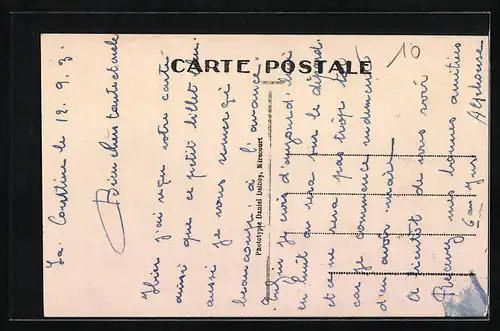 CARTE POSTALE
Phototypie Daniel Delboy, Mirecourt
10
La Courtine le 12. 9. 3.
Bien chers tante et oncle
Hier j'ai reçu votre carte
ainsi que ce petit billet
aussi je vous remercie
beaucoup à l'avance
Enfin je crois d'aujourd'hui
en huit on sera sur le départ
et ce ne sera pas trop tôt
car je commence rudement
d'en avoir marre
A bientôt de vous voir
Recevez mes bonnes amitiés
Alphonse